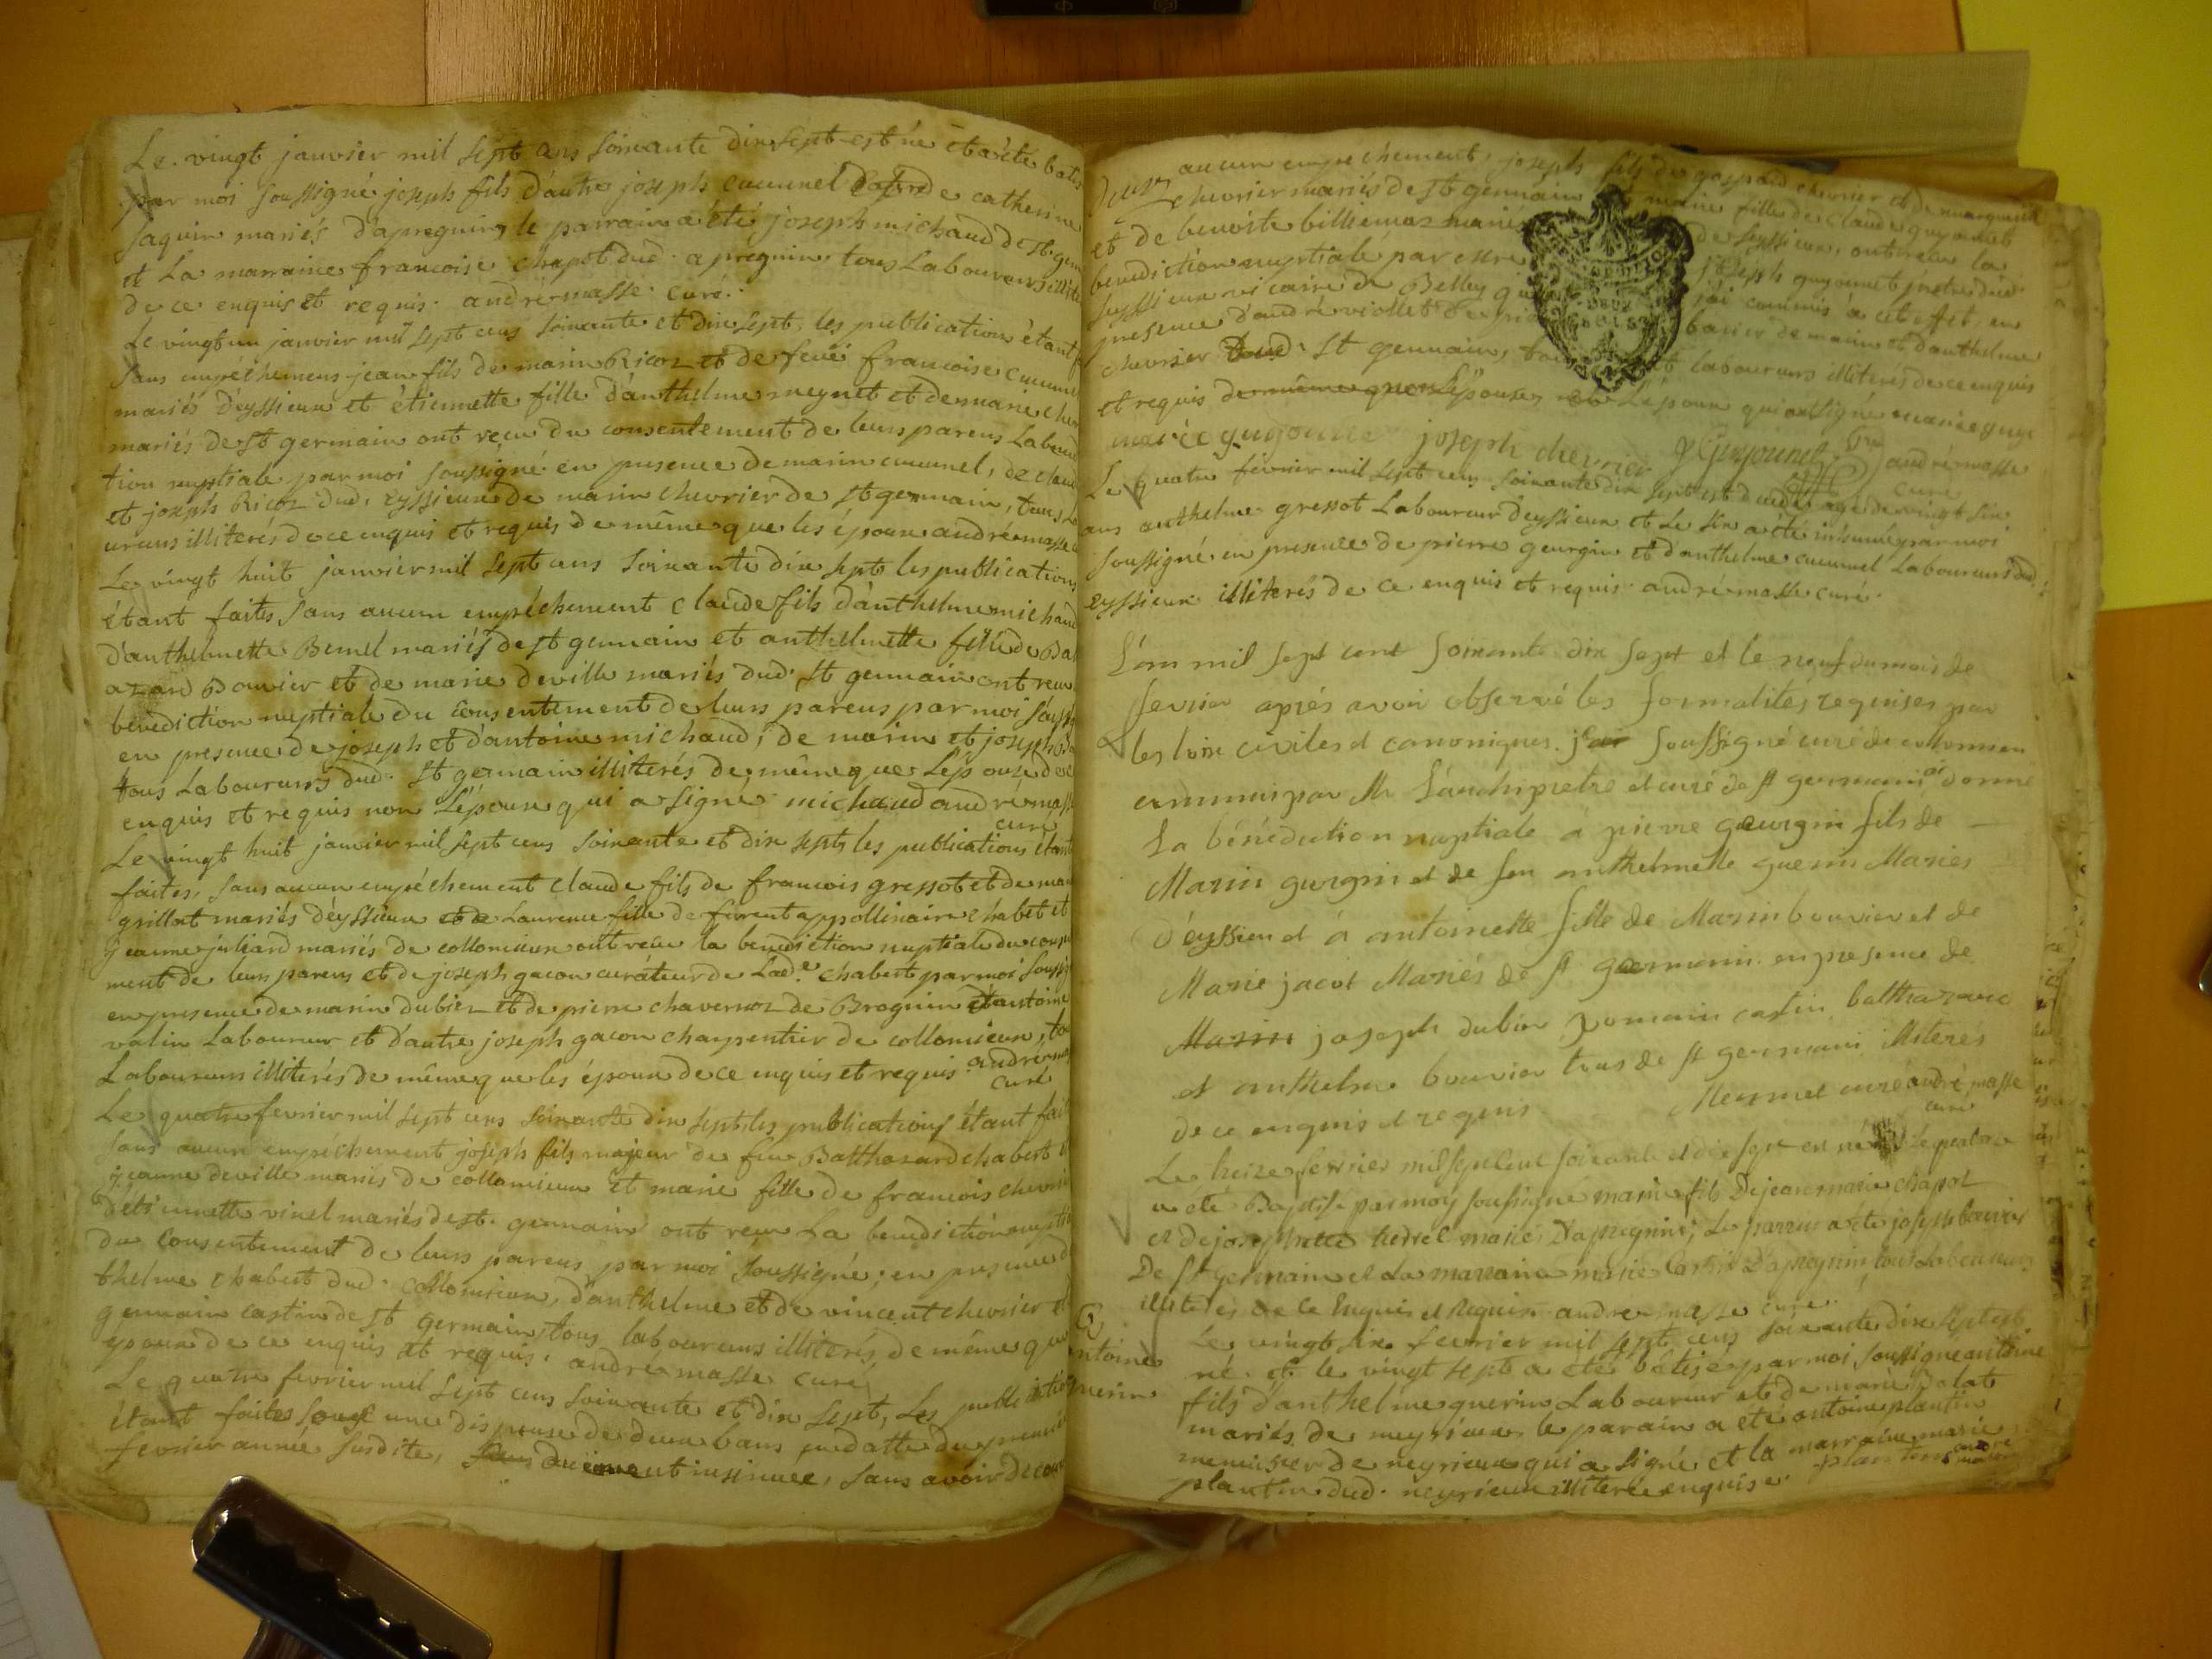 Le vingt janvier mil sept cens soixante dix sept est né et a été batis
par moi soussigné joseph fils d'autre joseph cucunel et de catherine
jaquin mariés d'apregnin, le parrain a été joseph michaud de St. germ
et La marraine francoise chapot dud. apregnin tous Laboureurs illité
de ce enquis et requis. andré masse curé.
Le vingt un janvier mil sept cens soixante et dix sept, les publications étant f
sans empéchemens jean fils de marin Ricoz et de feüe francoise cucunel
mariés deyssieux et étiennette fille d'anthelme meynet et de marie chev
mariés de St germain ont reçu du consentement de leurs parens La bened
tion nuptiale par moi soussigné en presence de marin cucunel, de claud
et joseph Ricoz dud. eyssieux de marin chevrier de St germain, tous La
ureurs illiterés de ce enquis et requis de même que les époux andré masse c
Le vingt huit janvier mil sept cens soixante dix sept les publications
étant faites sans aucun empéchement claude fils d'anthelme michaud
d'anthelmette Bernel mariés de St germain et anthelmette fille de Bal
azard Bouvier et de marie deville mariés dud. St germain ont reçu
bénédiction nuptiale du consentement de leurs parens par moi souss
en presence de joseph et d'antoine michaud, de marin et joseph
tous Laboureurs dud. St germain illiterés de même que L'épouse de ce
enquis et requis non L'époux qui a signé michaud andré masse
curé
Le vingt huit janvier mil sept cens soixante et dix sept les publications étant
faites, sans aucun empéchement claude fils de francois gressot et de mar
grillot mariés d'éyssieux et de Laurence fille de appollinaire chabet et
jeanne juliand mariés de collomieux ont reçu la benediction nuptiale du conse
ment de leurs parens et de joseph gacon curateur de Lade. chabert par moi souss
en presence de marin dubiez et de pierre chavernoz de Brognin et antoine
valin Laboureur et d'autre joseph gacon charpentier de collomieux, to
Laboureurs illiterés de même que les époux de ce enquis et requis. andré mas
curé
Le quatre fevrier mil sept cens soixante dix sept, les publications étant fait
sans aucun empéchement joseph fils majeur de feu Balthazard chabert et
jeanne deville mariés de collomieux et marie fille de francois chevrier
d'étiennette vinel mariés de St. germain ont reçu La benediction nupti
du consentement de leurs parens par moi soussigné; en presence d
thelme chabert dud. collomieux, d'anthelme et de vincent chevrier et
germain castin de St germain, tous laboureurs illiterés de même que
époux de ce enquis et requis. andré masse curé
Le quatre fevrier mil sept cens soixante et dix sept, Les publication
étant faites sauf une dispense de deux bans en datte du premier
fevrier année susdite, duement insinuée, sans avoir decou
aucun empéchement, joseph fils de gaspard chevrier et de marguerite
chevrier mariés de St germain et marie fille de claude guyonnet
et de benoite billiemaz mariés de seyssieux, ont reçu la
benediction nuptiale par joseph guyonnet prêtre dud.
vicaire de Belley j'ai commis à cet effet, en
presence d'andré viollet barier de marin et d'anthelme
chevrier dud. St germain, laboureurs illiterés de ce enquis
et requis de même que L'épouse, L'époux qui ont signé
joseph chevrier J Guyonnet andré masse
curé
Le quatre fevrier mil sept cens soixante dix sept est decedé agé de vingt six
ans anthelme gressot Laboureur d'eyssieux et Le six a été inhumé par moi
soussigné en presence de pierre geurgin et d'anthelme cucunel Laboureurs dud.
eyssieux illiterés de ce enquis et requis. andré masse curé.
L'an mil sept cent soixante dix sept et le neuf du mois de
fevrier aprés avoir observé les formalités requises par
les loix civiles et canoniques. j'ai soussigné curé de collomieu
commis par Mr L'archipretre et curé de St germain ai donné
La bénédiction nuptiale à pierre geurgin fils de
Marin gurgin et de feu anthelmette guerin Mariés
d'éyssieu et à antoinette fille de Marin bouvier et de
Marie jacot Mariés de St germain. en presence de
Marin joseph dubier romain castin balthazard
et anthelme bouvier tous de St germain illiterés
de ce enquis et requis. Meynet curé andré masse
curé
Le treize fevrier mil sept cent soixante et dix sept en né
a été Baptisé par moy soussigné marin fils De jean marie chapot
et de josephette hedrel mariés D'apregnin; Le parrain a été joseph bouvier
De St germain et La marraine marie castin D'apregnin tous Laboureurs
illiterés de ce Enquis et Requis. andré masse curé.
antoine
guerin
Le vingt six fevrier mil sept cens soixante dix sept est
né et le vingt sept a eté batisé par moi soussigné antoine
fils d'anthelme guerin Laboureur et de marie Balat
mariés de meyrieux le parain a eté antoine plantin
menuisier de neyrieux qui a signé et la marraine marie
plantin dud. neyrieux illiterée enquise. plantin andré
masse